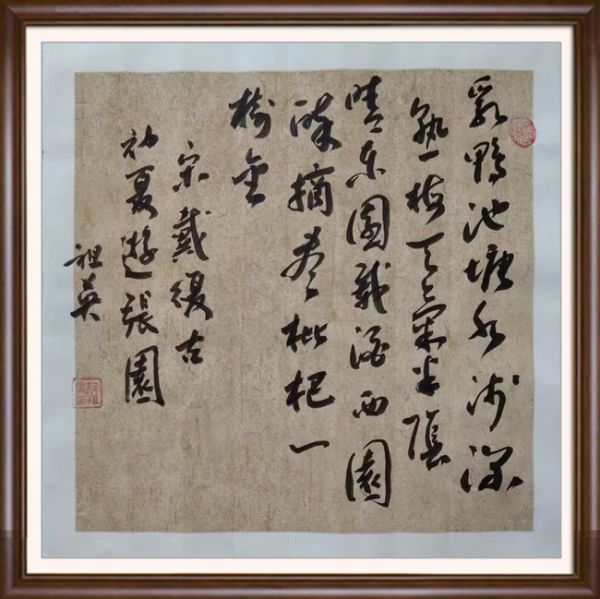 乳鴨池塘水淺深
熟梅天氣半陰
晴東園載酒西園
醉摘盡枇杷一
樹金
宋戴復古
初夏遊張園
祖英